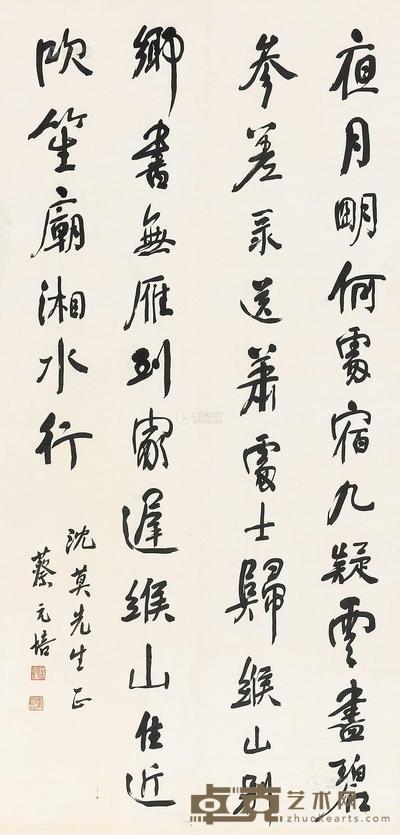 夜月明何處宿九疑雲盡碧
參差录送萧處士歸緱山別
鄉書無雁到家遲緱山住近
吹笙廟湘水行
沈莫先生正
蔡元培
卓克艺术网
www.zhuokearts.com